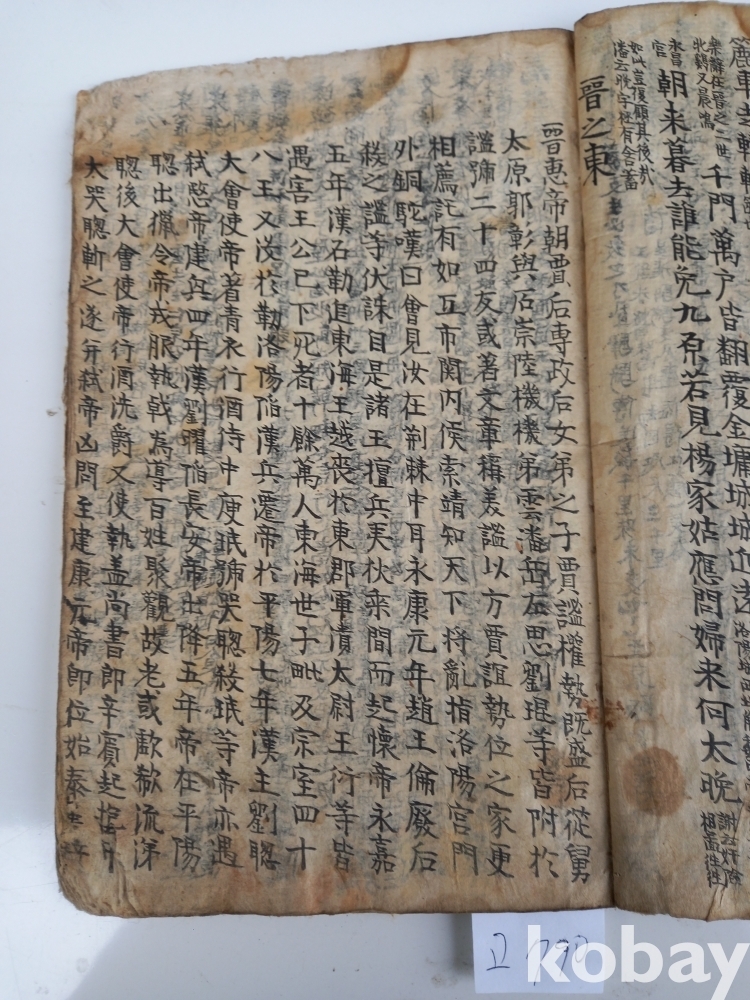 千門萬户皆翻覆金墉城城迫遠
永昌
宮
朝来暮去誰能免九原若見楊家姑應問婦来何太晚
如此豈復顧其後哉
潘云晩字極有含蓄
晋之東
晋惠帝朝賈后専政后女弟之子賈謐權勢既盛后從舅
太原郭彰與石崇陸機機弟雲潘岳左思劉琨等皆附於
謐號二十四友或著文章稱美謐以方賈誼勢位之家更
相薦託有如互市関内侯索靖知天下将亂指洛陽宮門
外銅駝嘆曰會見汝在荆棘中耳永康元年趙王倫廢后
殺之謐等伏誅自是諸王擅兵夷狄乗間而起懷帝永嘉
五年漢石勒追東海王越喪於東郡軍潰太尉王衍等皆
遇害王公已下死者十餘萬人東海世子毗及宗室四十
八王又没於勒洛陽陷漢兵遷帝於平陽七年漢主劉聰
大會使帝著青衣行酒侍中庾珉號哭聰殺珉等帝亦遇
弑愍帝建興四年漢劉曜陷長安帝出降五年帝在平陽
聰出獵令帝戎服執戟為導百姓聚觀故老或歔欷流涕
聰後大會使帝行酒洗爵又使執盖尚書郎辛賓起抱帝
太哭聰斬之遂并弑帝凶問至建康元帝即位始泰
kobay